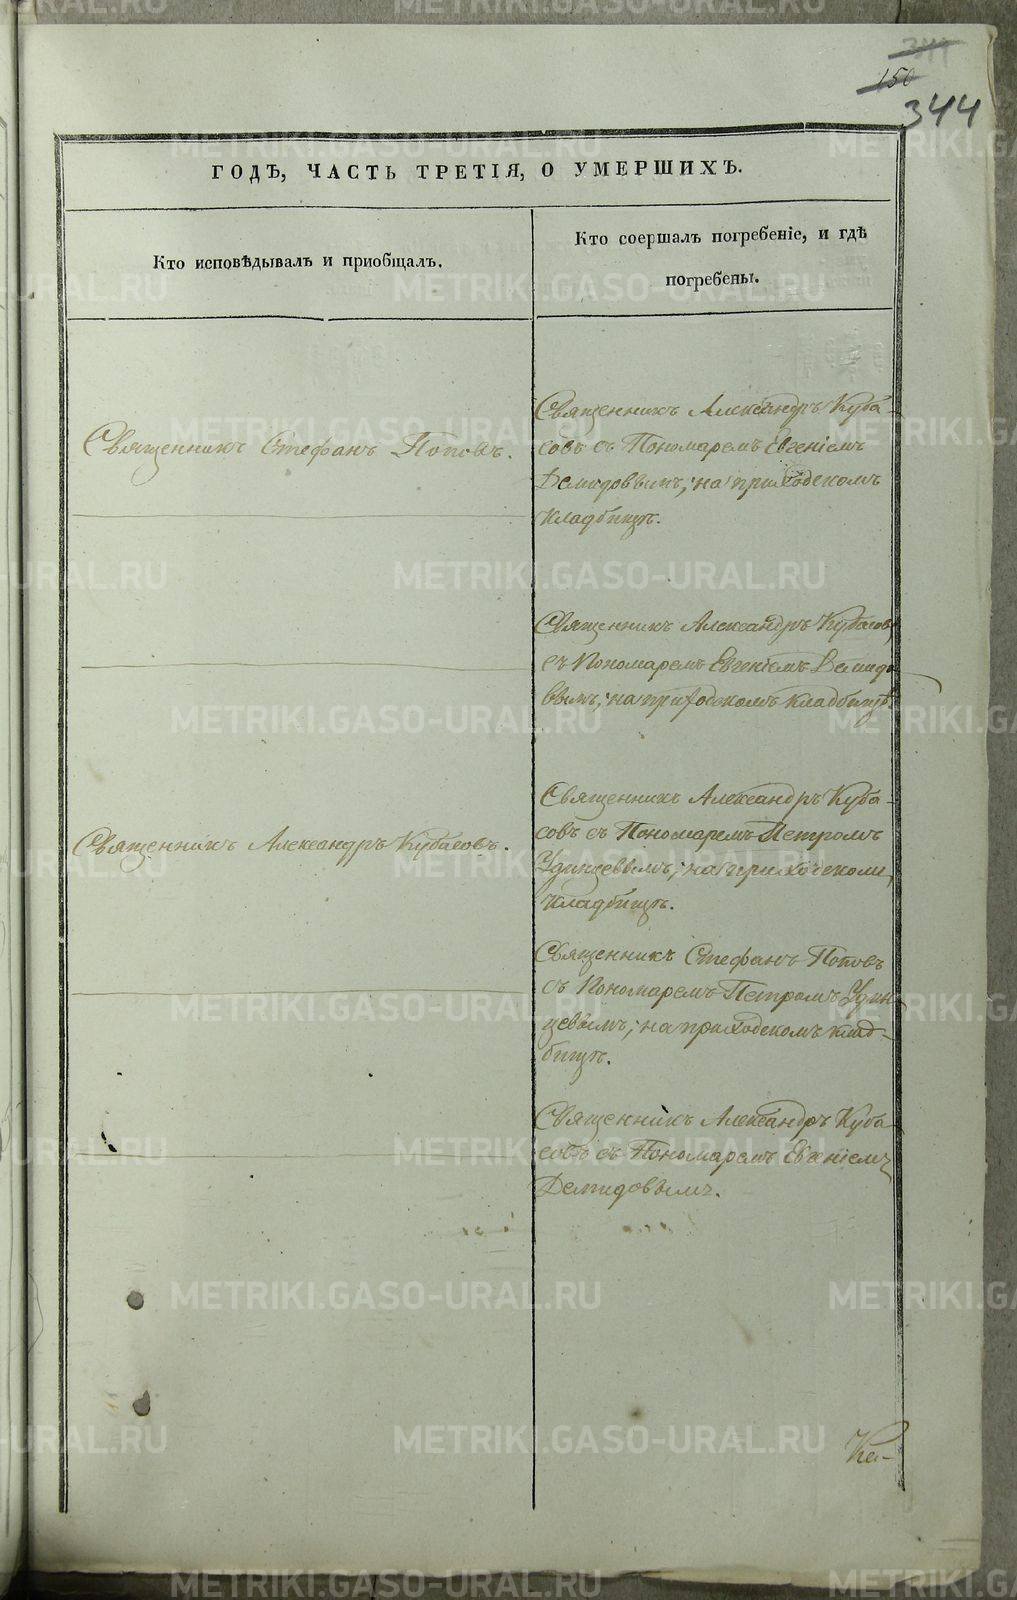 344
150
344
ГОДѢ, ЧАСТЬ ТРЕТІЯ, О УМЕРШИХЪ.
Кто исповѣдывалъ и приобщалъ.
Кто соершалъ погребеніе, и гдѣ
погребены.
Священникъ Стефанъ Поповъ.
Священникъ Александръ Куба-
совъ съ Пономаремъ Евгеніемъ
Демидовымъ; на приходскомъ
кладбищѣ.
Священникъ Александръ Кубасовъ
съ Пономаремъ Евгеніемъ Демидо
вымъ; на приходскомъ кладбищѣ.
Священникъ Александръ Кубасовъ.
Священникъ Александръ Куба-
совъ съ Пономаремъ Петромъ
Удинцевымъ; на приходскомъ
кладбищѣ.
Священникъ Стефанъ Поповъ
съ Пономаремъ Петромъ Удин
цевымъ; на приходскомъ клад-
бищѣ.
Священникъ Александръ Куба
совъ съ Пономаремъ Евгеніемъ
Демидовымъ.
METRIKI.GASO-URAL.RU